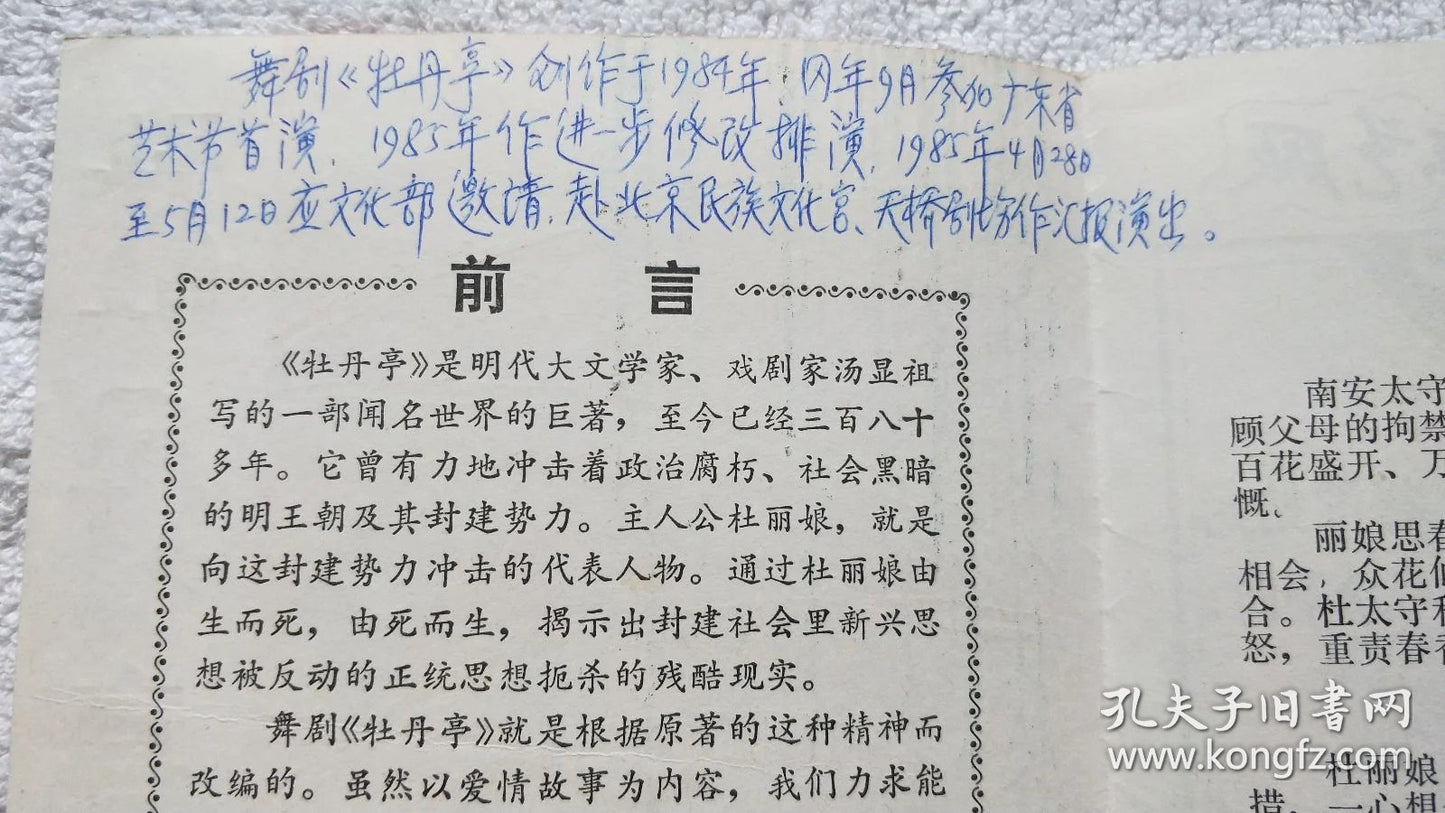 舞剧《牡丹亭》创作于1984年，同年9月参加广东省
艺术节首演，1985年作进一步修改排演，1985年4月28日
至5月12日应文化部邀请，赴北京民族文化宫、天桥剧场作汇报演出。
前言
《牡丹亭》是明代大文学家、戏剧家汤显祖
写的一部闻名世界的巨著，至今已经三百八十
多年。它曾有力地冲击着政治腐朽、社会黑暗
的明王朝及其封建势力。主人公杜丽娘，就是
向这封建势力冲击的代表人物。通过杜丽娘由
生而死，由死而生，揭示出封建社会里新兴思
想被反动的正统思想扼杀的残酷现实。
舞剧《牡丹亭》就是根据原著的这种精神而
改编的。虽然以爱情故事为内容，我们力求能
南安太守
顾父母的拘禁
百花盛开、万
慨。
丽娘思春
相会，众花仙
合。杜太守和
怒，重责春香
杜丽娘
措，一心想
孔夫子旧书网
www.kongfz.com